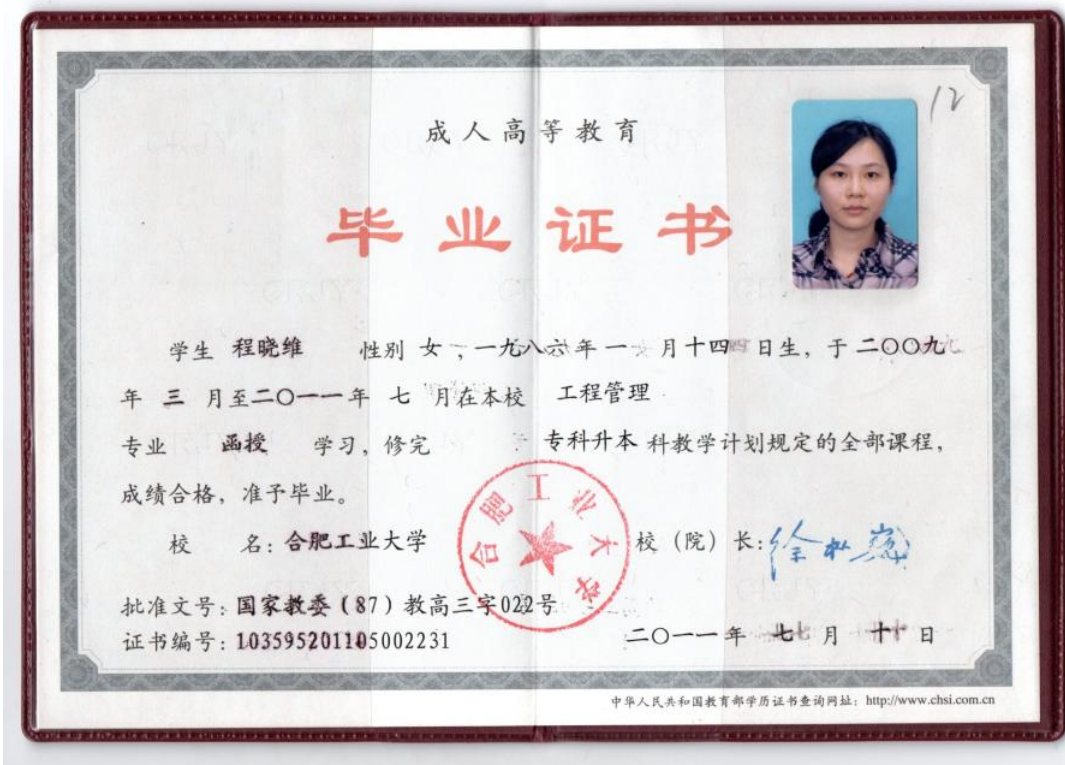 12
成人高等教育
毕业证书
学生 程晓维 性别 女，一九八六年一月十四日生，于二〇〇九
年 三 月至二〇一一年 七 月在本校 工程管理
专业 函授 学习，修完 专科升本科教学计划规定的全部课程，
成绩合格，准予毕业。
合肥工业大学
校 名：合肥工业大学 校（院）长：
批准文号：国家教委（87）教高三字022号
证书编号：103595201105002231 二〇一一年 七 月 十 日
中华人民共和国教育部学历证书查询网址：http://www.chsi.com.cn